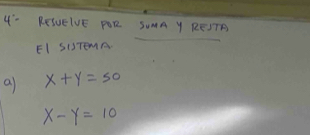 4:- RESUELVE POR SUMA Y RESTA
El SISTEMA
a) X + Y = 50
X - Y = 10